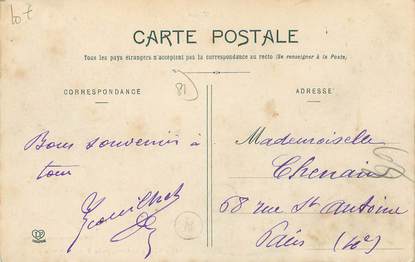 Lot
CARTE POSTALE
Tous les pays étrangers n'acceptent pas la correspondance au recto (Se renseigner à la Poste)
81
CORRESPONDANCE
Bons souvenirs à
tous
ADRESSE
Mademoiselle
Chenain
68 rue St Antoine
Paris (4e)